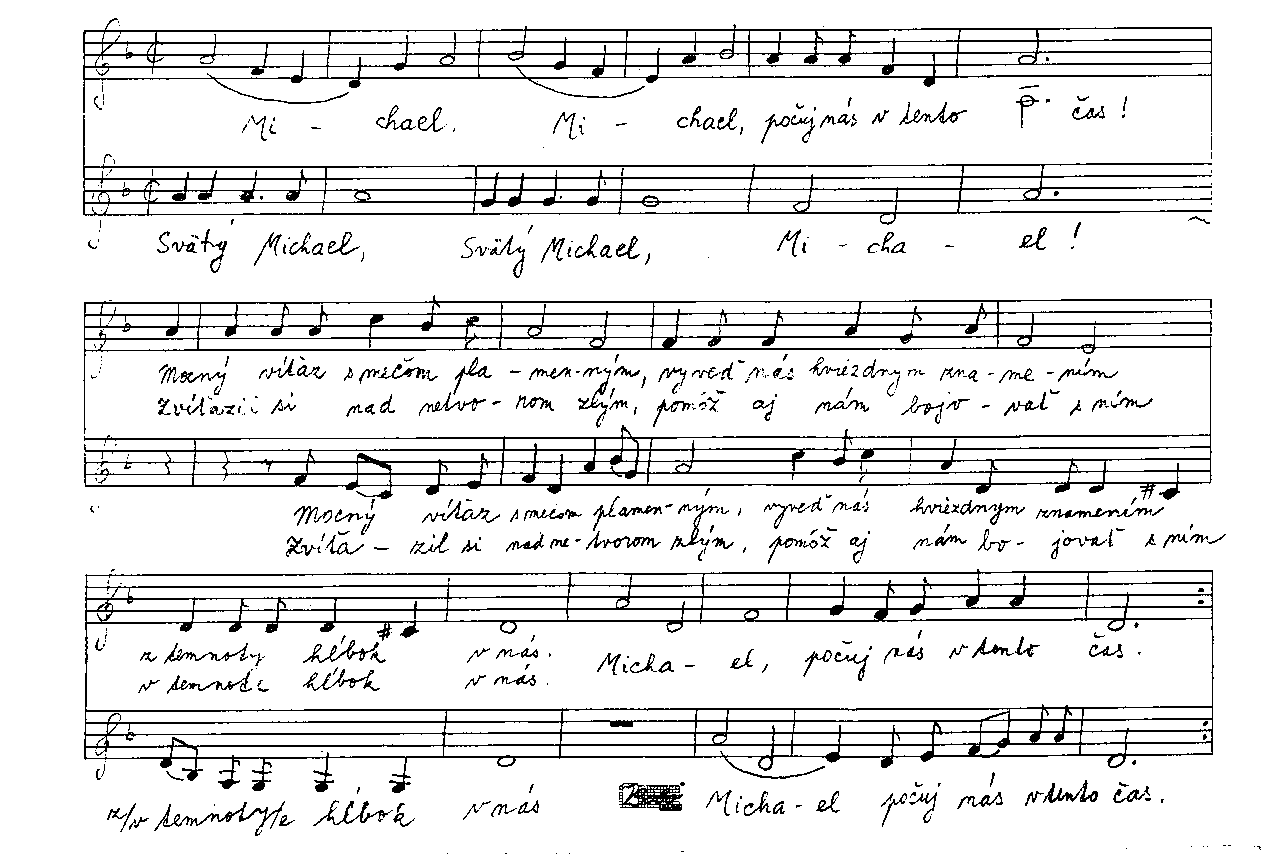 Mi - chael. Mi - chael, počuj nás v tento čas!
Svätý Michael, Svätý Michael, Mi - cha - el!
Mocný víťaz s mečom pla - men - ným, vyveď nás hviezdnym zna - me - ním
Zvíťazil si nad netvo - rom zlým, pomôž aj nám bojo - vať s ním
Mocný víťaz s mečom plamen - ným, vyveď nás hviezdnym znamením
Zvíťa - zil si nad ne - tvorom zlým, pomôž aj nám bo - jovať s ním
z temnoty hĺbok v nás. Micha - el, počuj nás v tento čas.
v temnote hĺbok v nás.
z/v temnoty/e hĺbok v nás Micha - el počuj nás v tento čas.